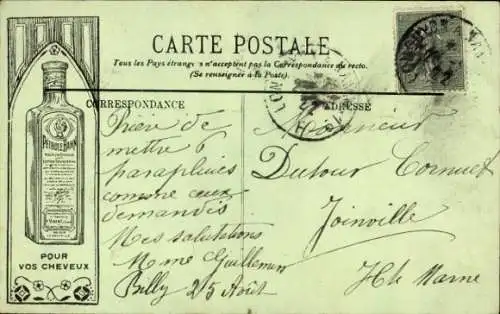 CARTE POSTALE
Tous les Pays étrangers n'acceptent pas la Correspondance au recto.
(Se renseigner à la Poste).
CORRESPONDANCE
ADRESSE
PÉTROLE HAHN
POUR
VOS CHEVEUX
Prière de
mettre 6
parapluies
comme ceux
demandés
Mes salutations
Mme Guillemin
Billy 25 Août
Monsieur
Dutour Cornuet
Joinville
Hte Marne